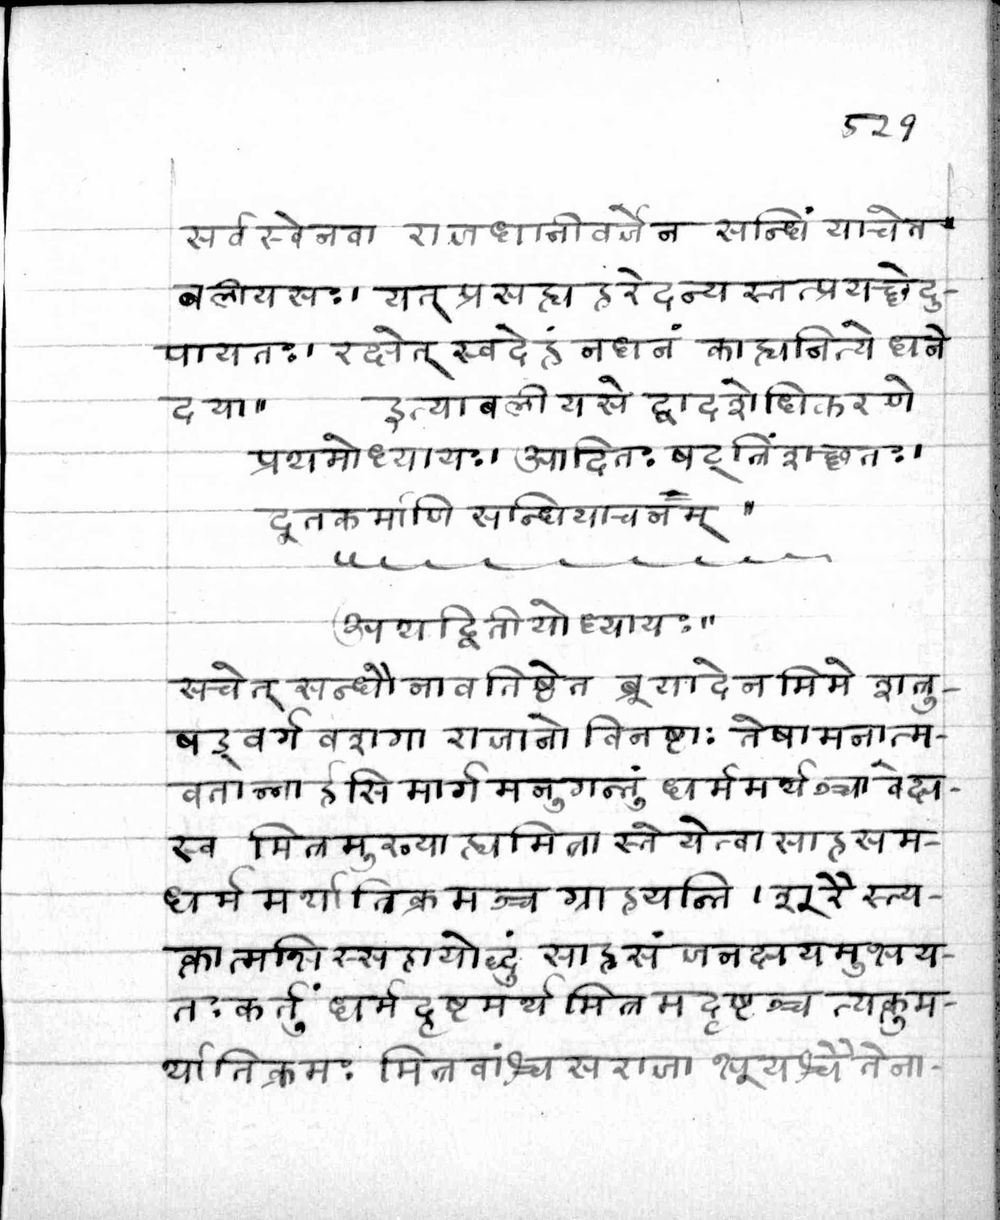 529
सर्वस्वेनवा राजधानीवर्जेन सन्धिं याचेत
बलीयसः। यत् प्रसह्य हरेदन्यस्तत्प्रयच्छेदु-
पायतः। रक्षेत् स्वदेहं नधनं काह्यनित्ये धने
दया॥ इत्याबलीयसे द्वादशेधिकरणे
प्रथमोध्यायः। आदितः षट्त्रिंशच्छतः।
दूतकर्माणि सन्धियाचनम्॥
अथद्वितीयोध्यायः॥
सचेत् सन्धौनावतिष्ठेत ब्रूयादेनमिमे शत्रु-
षड्वर्गवशगा राजानो विनष्टाः तेषामनात्म-
वतान्नार्हसि मार्गमनुगन्तुं धर्ममर्थञ्चावेक्ष-
स्व मित्रमुख्या ह्यमित्रास्ते येत्वा साहसम-
धर्ममर्थातिक्रमञ्च ग्राहयन्ति। शूरैस्त्य-
क्तात्मभिस्सहायोद्धुं साहसं जनक्षयमुभय-
तः कर्तुं धर्म दृष्टमर्थमित्रमदृष्टञ्च त्यक्तुम-
र्थातिक्रमः मित्रवांश्च सराजा भूयश्चैतेना-